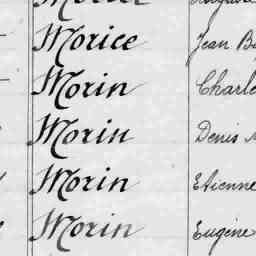 Morice Jean B
Morin Charle
Morin Denis
Morin Etienne
Morin Eugène